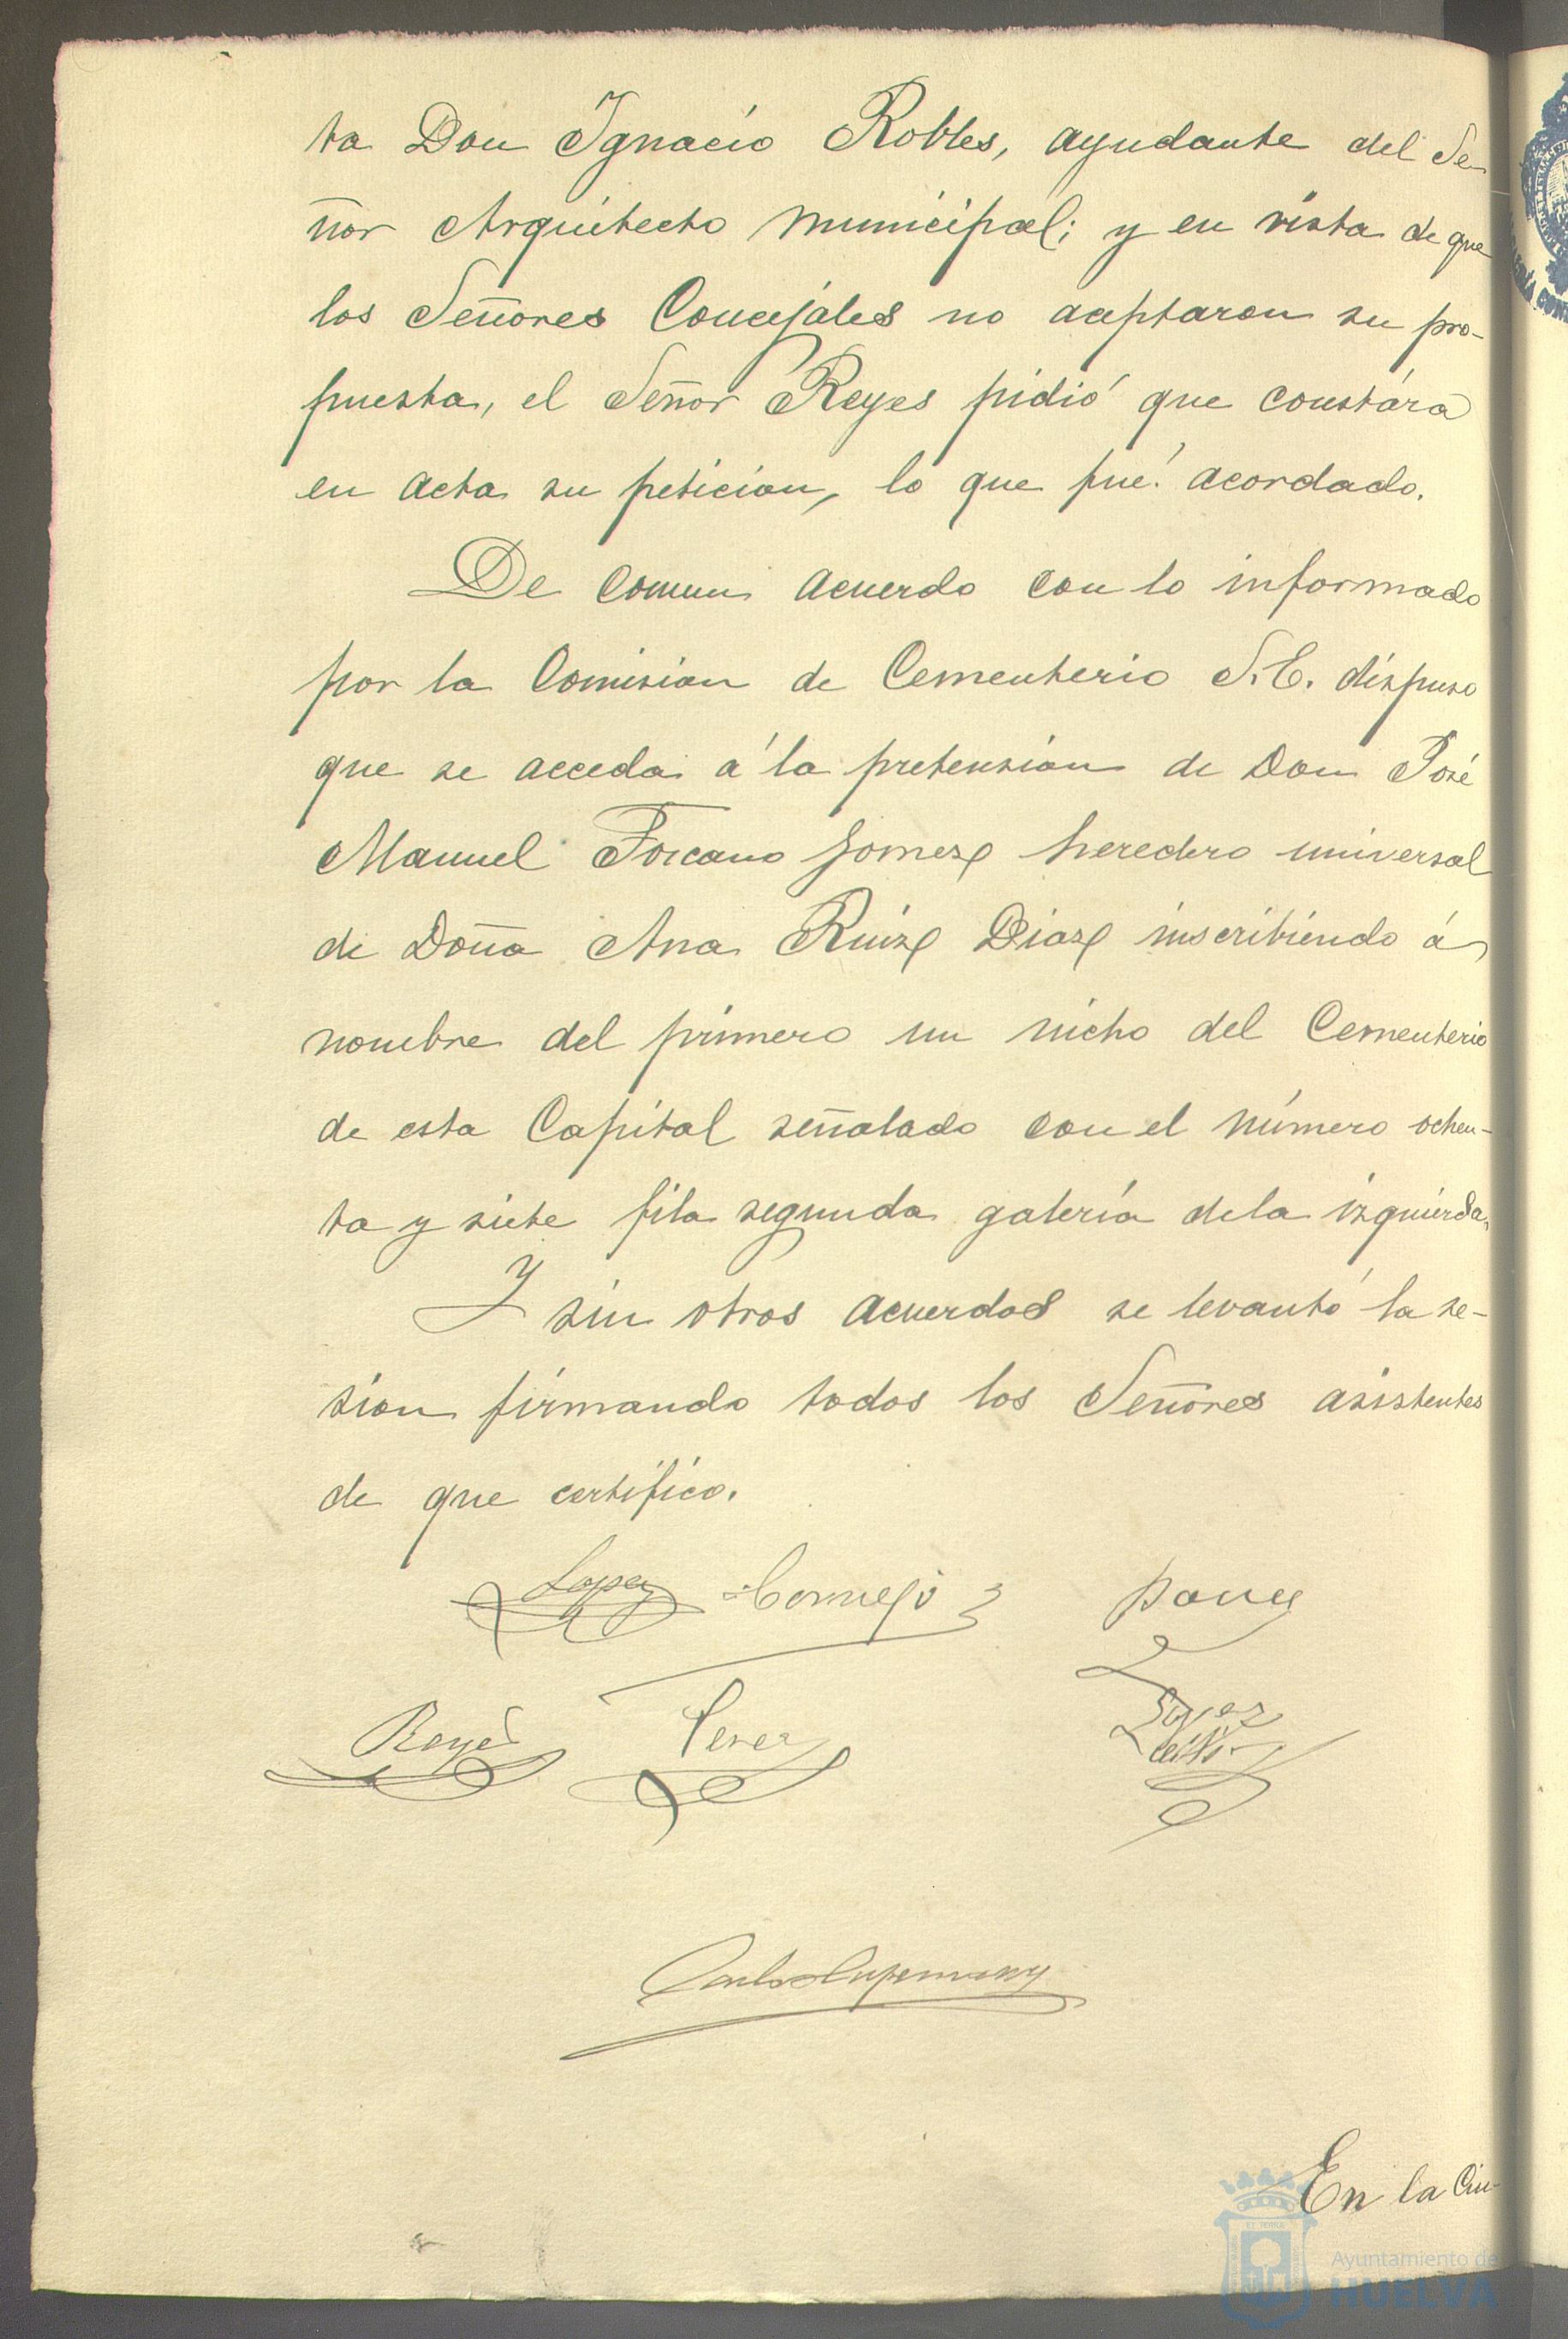 ta Don Ignacio Robles, ayudante del Se-
ñor Arquitecto Municipal; y en vista de que
los Señores Concejales no aceptaron su pro-
puesta, el Señor Reyes pidió que constára
en acta su peticion, lo que fué acordado.
De comun acuerdo con lo informado
por la Comision de Cementerio S.E. dispuso
que se acceda á la pretension de Don José
Manuel Toscano Gomez heredero universal
de Doña Ana Ruiz Diaz inscribiendo á
nombre del primero un nicho del Cementerio
de esta Capital señalado con el número ochen-
ta y siete fila segunda galería de la izquierda.
Y sin otros acuerdos se levantó la se-
sion firmando todos los Señores asistentes
de que certifico.
Lopez Cornejo
Reyes Perez
En la Ciu-
Ayuntamiento de
HUELVA